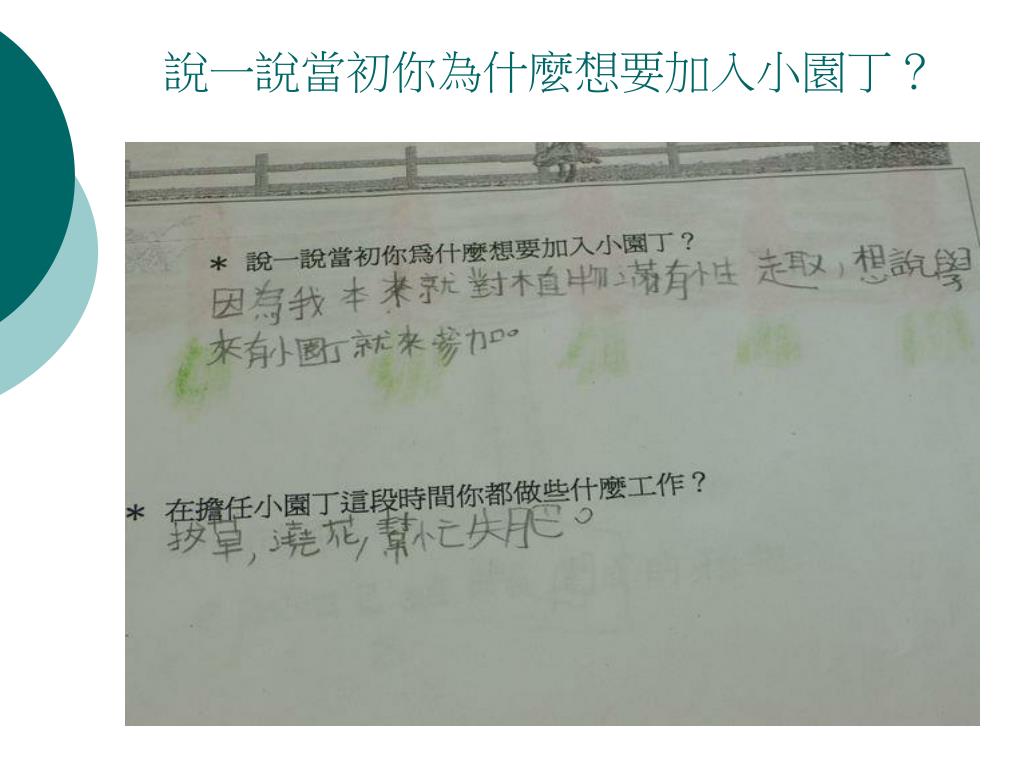 說一說當初你為什麼想要加入小園丁？
* 說一說當初你為什麼想要加入小園丁？
因為我本來就對植物滿有性走取，想說學
來有小園丁就來參加。
* 在擔任小園丁這段時間你都做些什麼工作？
拔草，澆花，幫忙失肥。